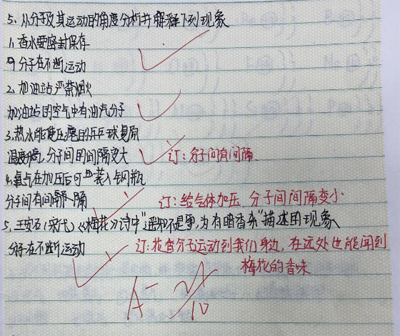 5、从分子及其运动的角度分析并解释下列现象
1.香水要密封保存
分子在不断运动
2、加油站严禁烟火
加油站的空气中有油汽分子
3.热水能使压瘪的乒乓球复原
温度高，分子间的间隔变大 订：分子间有间隔.
4.氧气在加压后可装入钢瓶
分子有间隔 订：给气体加压，分子间间隔变小
5、王安石(宋代)《梅花》诗中"遥知不是雪，为有暗香来"描述的现象
分子在不断运动 订：花香分子运动到我们身边，在远处也能闻到
梅花的香味
A-
10